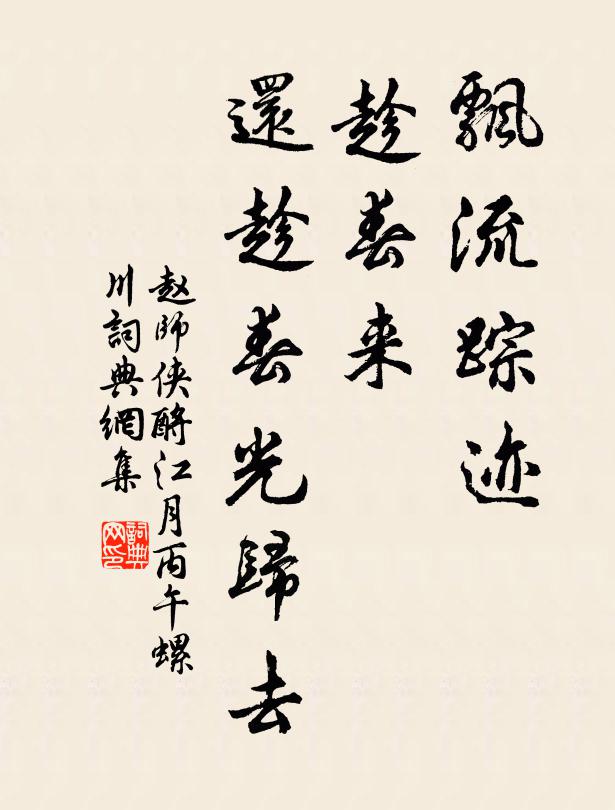 飄流踪迹
趁春来
還趁春光歸去
赵師侠酹江月丙午螺
川詞典網集
詞典
网印